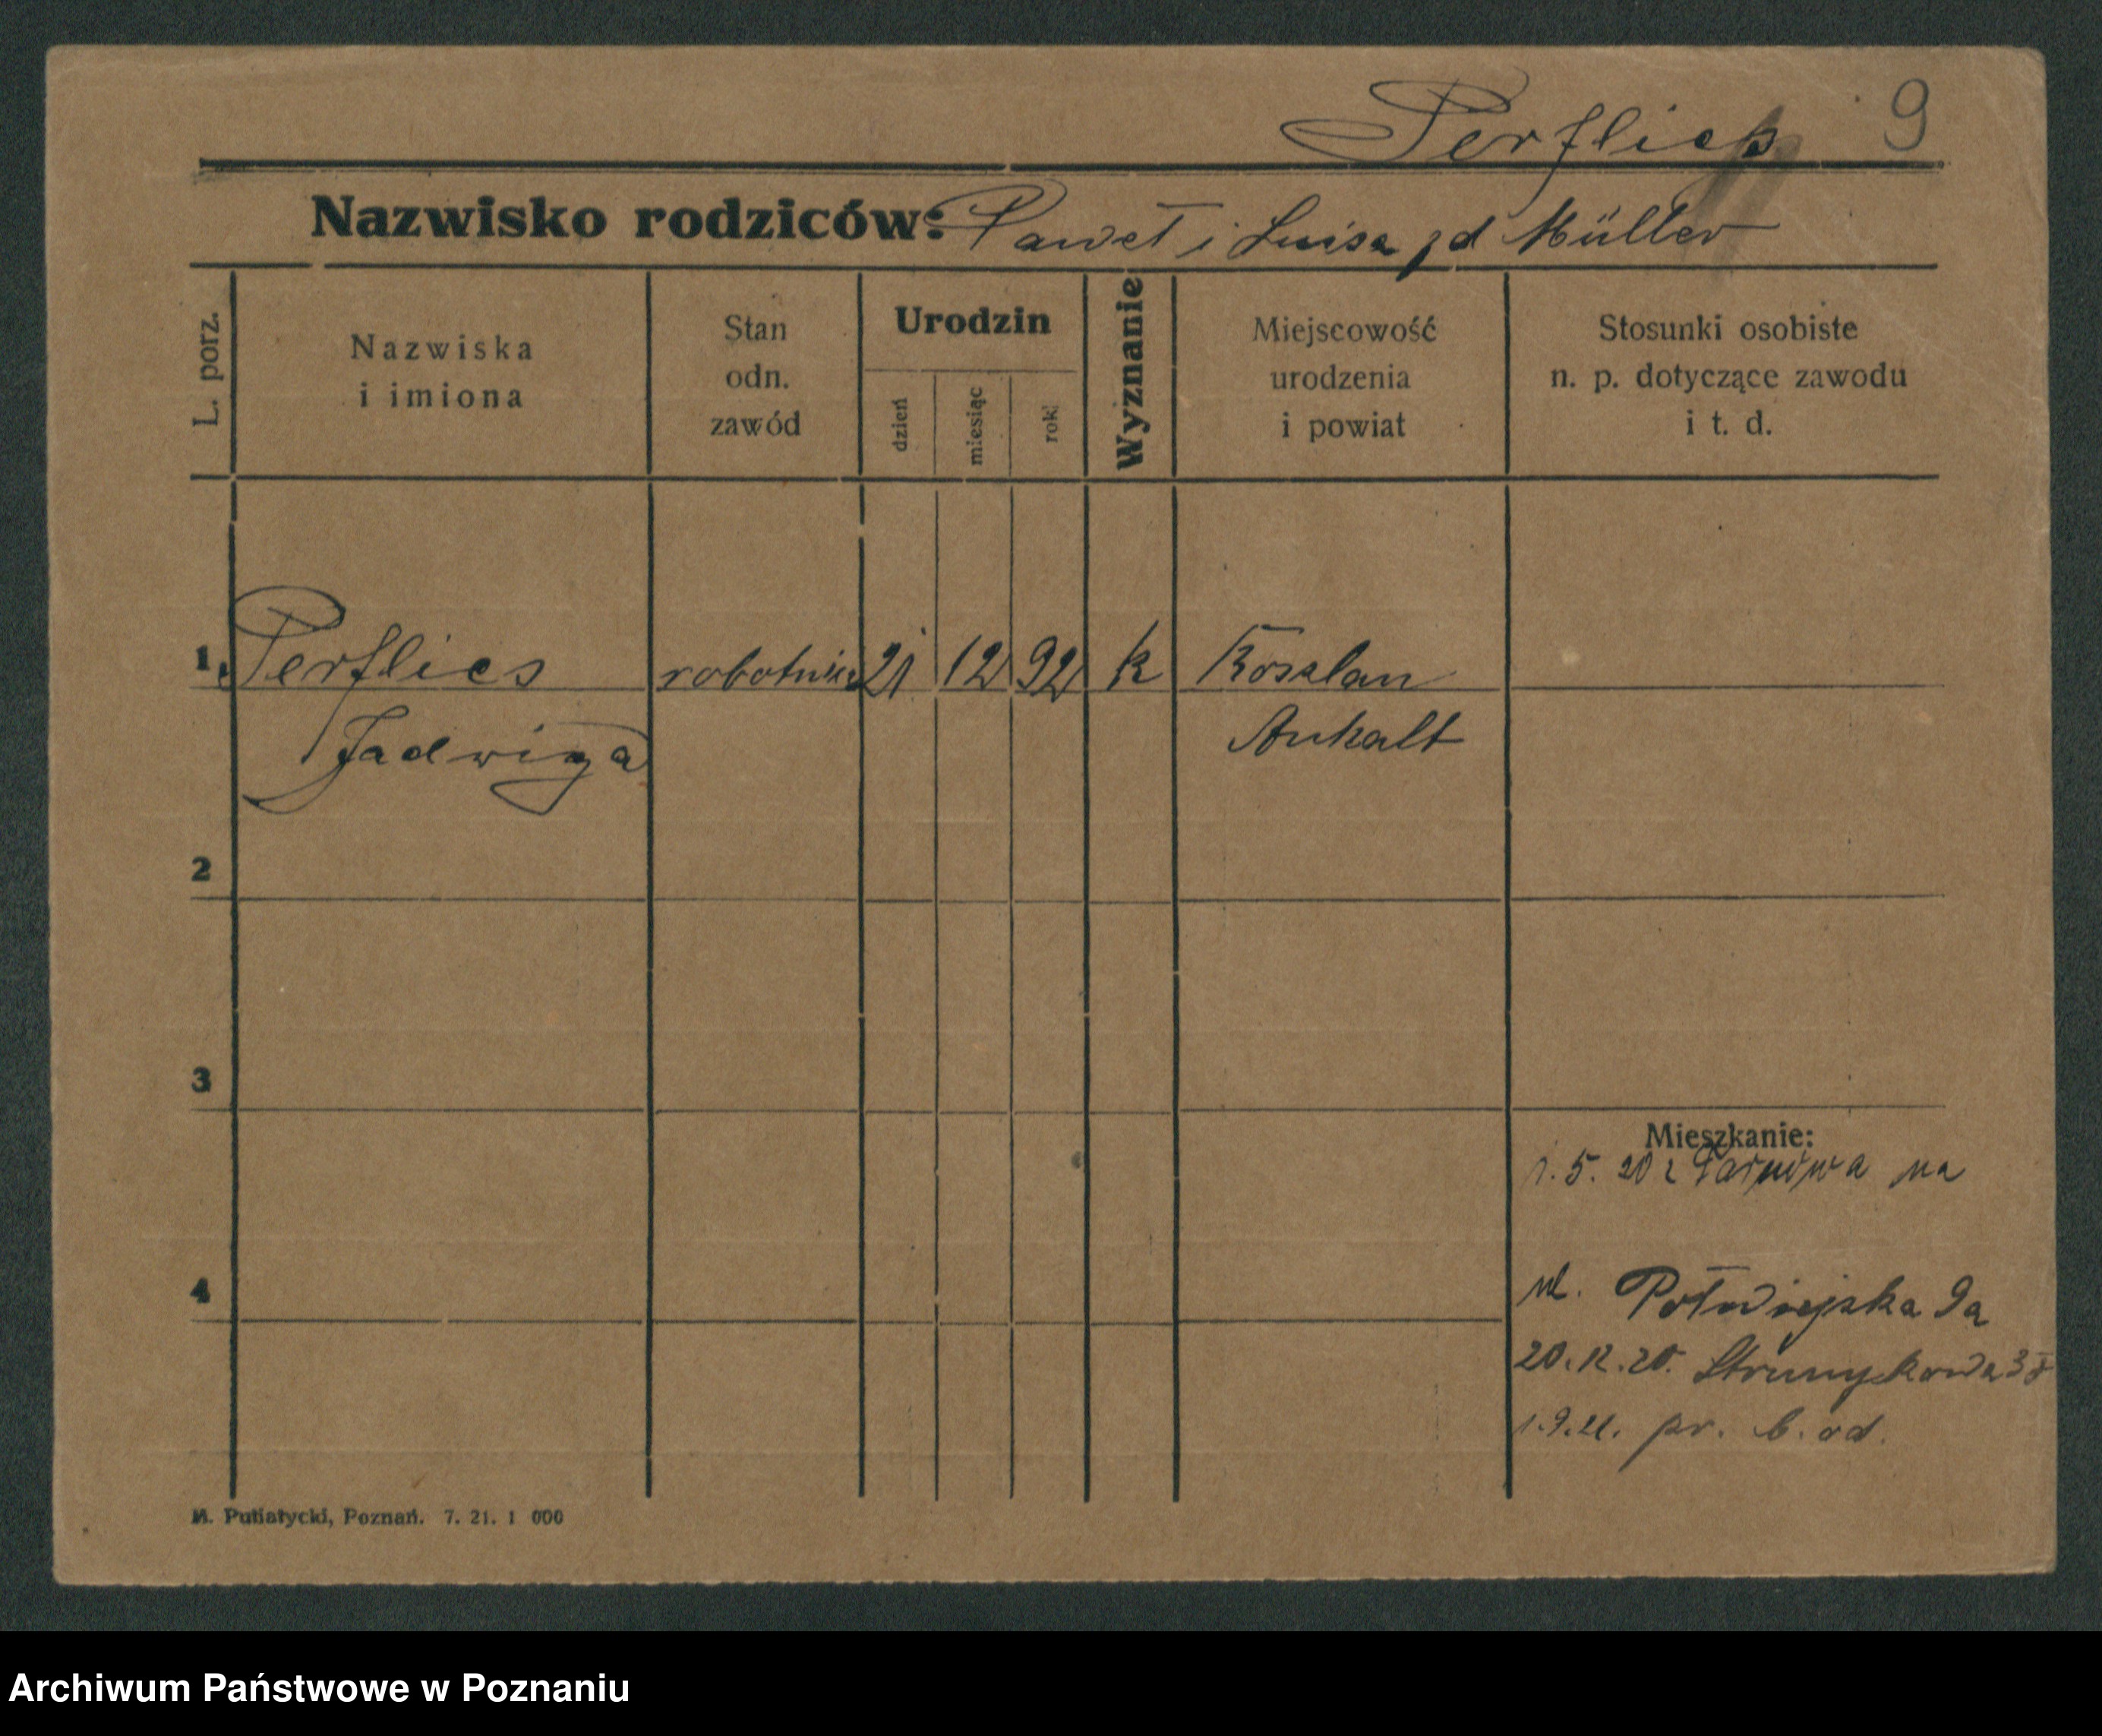 Perflies 9
Nazwisko rodziców: Paweł i Luisa zd Müller
L. porz.
Nazwiska
i imiona
Stan
odn.
zawód
Urodzin
dzień
miesiąc
rok
Wyznanie
Miejscowość
urodzenia
i powiat
Stosunki osobiste
n. p. dotyczące zawodu
i t. d.
1. Perflies robotnica 21 12 92 k Rosslau
Jadwiga Anhalt
2
3
Mieszkanie:
1. 5. 20 z Tarnowa na
4
ul. Półwiejska 9a
20.12.20. Strumykowa
1.9.21. pr. b. od.
M. Putiatycki, Poznań. 7. 21. 1 000
Archiwum Państwowe w Poznaniu